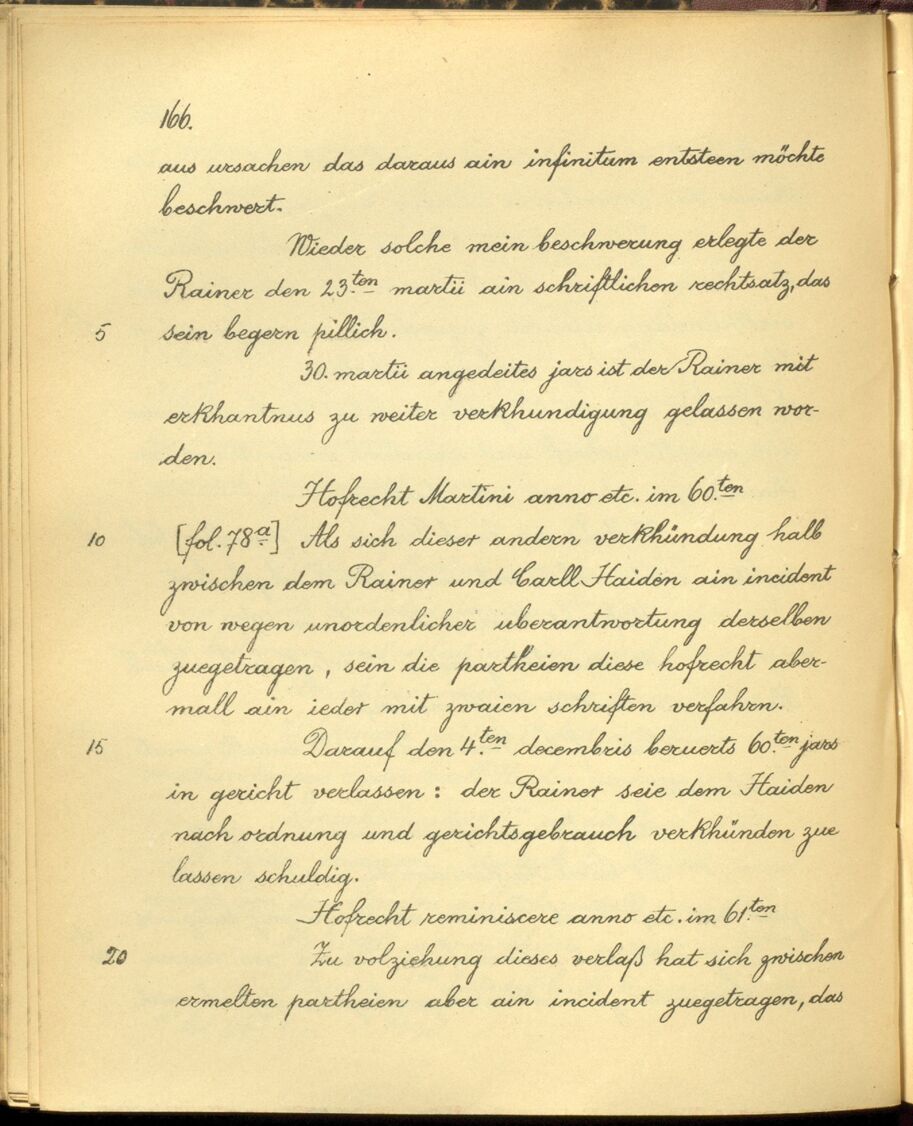 166.
aus ursachen das daraus ain infinitum entsteen möchte
beschwert.
Wieder solche mein beschwerung erlegte der
Rainer den 23.ten martii ain schriftlichen rechtsatz, das
5 sein begern pillich.
30. martii angedeites jars ist der Rainer mit
erkhantnus zu weiter verkhundigung gelassen wor-
den.
Hofrecht Martini anno etc. im 60.ten
10 [fol. 78a.] Als sich dieser andern verkhündung halb
zwischen dem Rainer und Carll Haiden ain incident
von wegen unordenlicher uberantwortung derselben
zuegetragen, sein die partheien diese hofrecht aber-
mall ain ieder mit zwaien schriften verfahrn.
15 Darauf den 4.ten decembris beruerts 60.ten jars
in gericht verlassen: der Rainer seie dem Haiden
nach ordnung und gerichtsgebrauch verkhünden zue
lassen schuldig.
Hofrecht reminiscere anno etc. im 61.ten
20 Zu volziehung dieses verlaß hat sich zwischen
ermelten partheien aber ain incident zuegetragen, das